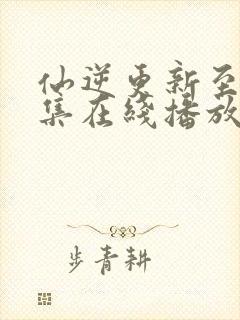 仙逆更新至
集在线播放
步青耕